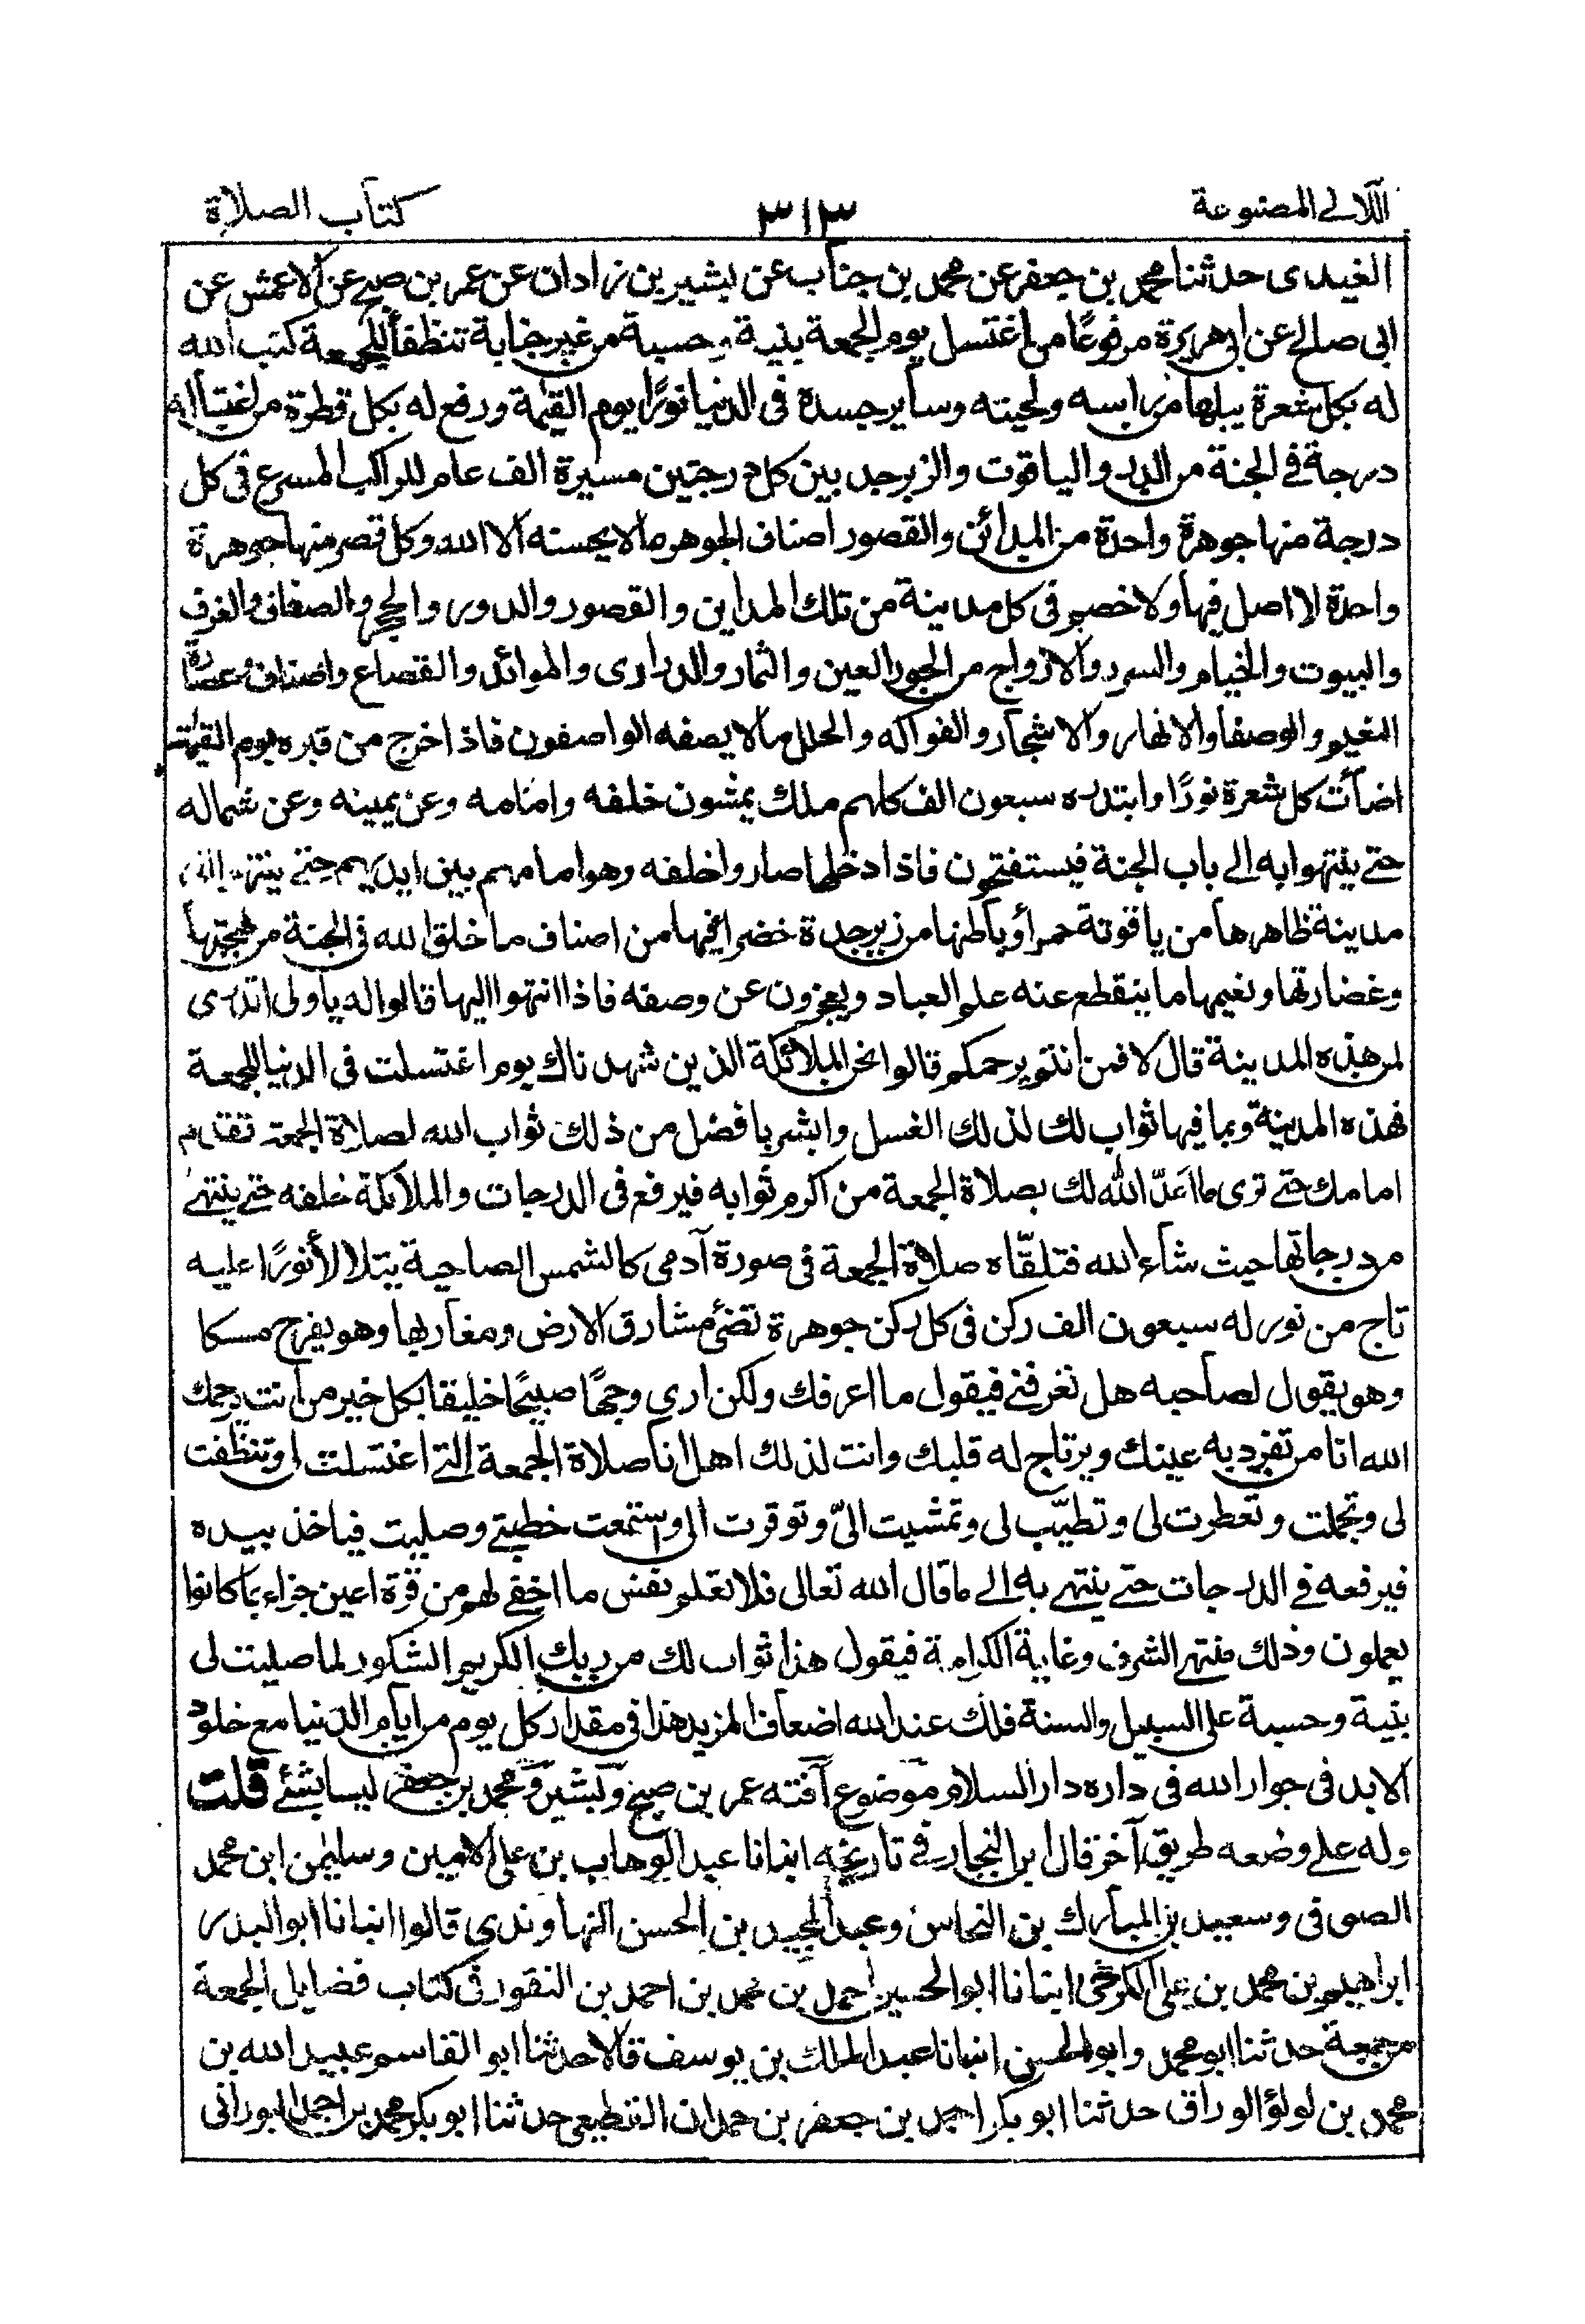 اللآلے المصنوعة ٣١٣ كتاب الصلاة
الغيدى حدثنا محمد بن جعفر عن محمد بن جناب عن بشير بن زادان عن عمر بن صبح عن الاعمش عن
ابى صالح عن ابى هريرة مرفوعًا من اغتسل يوم الجمعة بنية وحسبة من غير جنابة تنظفاً للجمعة كتب الله
له بكل شعرة يبلها من راسه ولحيته وساير جسده فى الدنيا نورًا يوم القيٰمة ورفع له بكل قطرة من اغتساله
درجة فى الجنة من الدر والياقوت والزبرجد بين كل درجتين مسيرة الف عام للراكب المسرع فى كل
درجة منها جوهرة واحدة من المدائن والقصور اصناف الجوهر ما لا يحسنه الا الله وكل قصر منها جوهرة
واحدة لا اصل فيها ولا خصم فى كل مدينة من تلك المداين والقصور والدور والحجر والصفافى والغرف
والبيوت والخيام والسرر والازواج من الحور العين والثمار والدرارى والموائد والقصاع واصناف وغضارة
النعيم والوصفا والانهار والاشجار والفواكه والحلل ما لا يصفه الواصفون فاذا خرج من قبره يوم القيٰمة
اضأت كل شعرة نورًا وابتدره سبعون الف كلهم ملك يمشون خلفه وامامه وعن يمينه وعن شماله
حتے ينتهوا به الے باب الجنة فيستفتحون فاذا دخلها صاروا خلفه وهو امامهم بين ايديهم حتے ينتهى الى
مدينة ظاهرها من ياقوتة حمرأ وباطنها من زبرجدة خضرا فيها من اصناف ما خلق الله فى الجنة من بهجتها
وغضارتها ونعيمها ما ينقطع عنه علم العباد ويعجزون عن وصفه فاذا انتهوا اليها قالوا له يا ولى اتدرى
لمن هذه المدينة قال لا فمن انتم يرحمكم قالوا نحن الملائكة الذين شهدناك يوم اغتسلت فى الدنيا للجمعة
فهذه المدينة وما فيها ثواب لك لذلك الغسل وابشر بافضل من ذلك ثواب الله لصلاة الجمعة تقدم
امامك حتے ترى ما اعدّ الله لك بصلاة الجمعة من اكرم ثوابه فيرفع فى الدرجات والملائكة خلفه حتے ينتهے
من درجاتها حيث شاء الله فتلقّاه صلاة الجمعة فى صورة آدمى كالشمس الصاحية يتلالأ نورًا عليه
تاج من نور له سبعون الف ركن فى كل ركن جوهرة تضئ مشارق الارض ومغاربها وهو يفرح مسكا
وهو يقول لصاحبه هل تعرفنے فيقول ما اعرفك ولكن ارى وجهًا صبيحًا خليقا بكل خير من انت يرحمك
الله انا من تقر به عينك ويرتاح له قلبك وانت لذلك اهل انا صلاة الجمعة التے اغتسلت لى وتنظفت
لى وتجملت وتعطرت لى وتطيّب لى وتمشيت الىّ وتوقرت الى واستمعت خطبتے وصليت فياخذ بيده
فيرفعه فے الدرجات حتے ينتهے به الے ما قال الله تعالى فلا تعلم نفس ما اخفے لهم من قرة اعين جزاء بما كانوا
يعملون وذلك منتهى الشرف وغاية الكرامة فيقول هذا ثواب لك من ربك الكريم الشكور لما صليت لى
بنية وحسبة على السبيل والسنة فلك عند الله اضعاف المزيد هذا فى مقدار كل يوم من ايام الدنيا مع خلود
الابد فى جوار الله فى داره دار السلام موضوع آفته عمر بن صبح وبشير ومحمد بن جعفر ليسا بشئے قلت
وله علے وضعه طريق آخر قال ابن النجار فے تاريخه انبانا عبد الوهاب بن على الامين وسليمٰن ابن محمد
الصوفى وسعيد بن المبارك بن النحاس وعبد المجيد بن الحسن النهاوندى قالوا انبانا ابو البدر
ابراهيم بن محمد بن على الكرخى انبانا ابو الحسين احمد بن محمد بن احمد بن النقور فى كتاب فضايل الجمعة
من جمعة حدثنا ابو محمد وابو الحسن انبانا عبد الملك بن يوسف قالا حدثنا ابو القاسم عبيد الله بن
محمد بن لولؤ الوراق حدثنا ابو بكر احمد بن جعفر بن حمدان القطيعى حدثنا ابو بكر محمد بن احمد البورانى